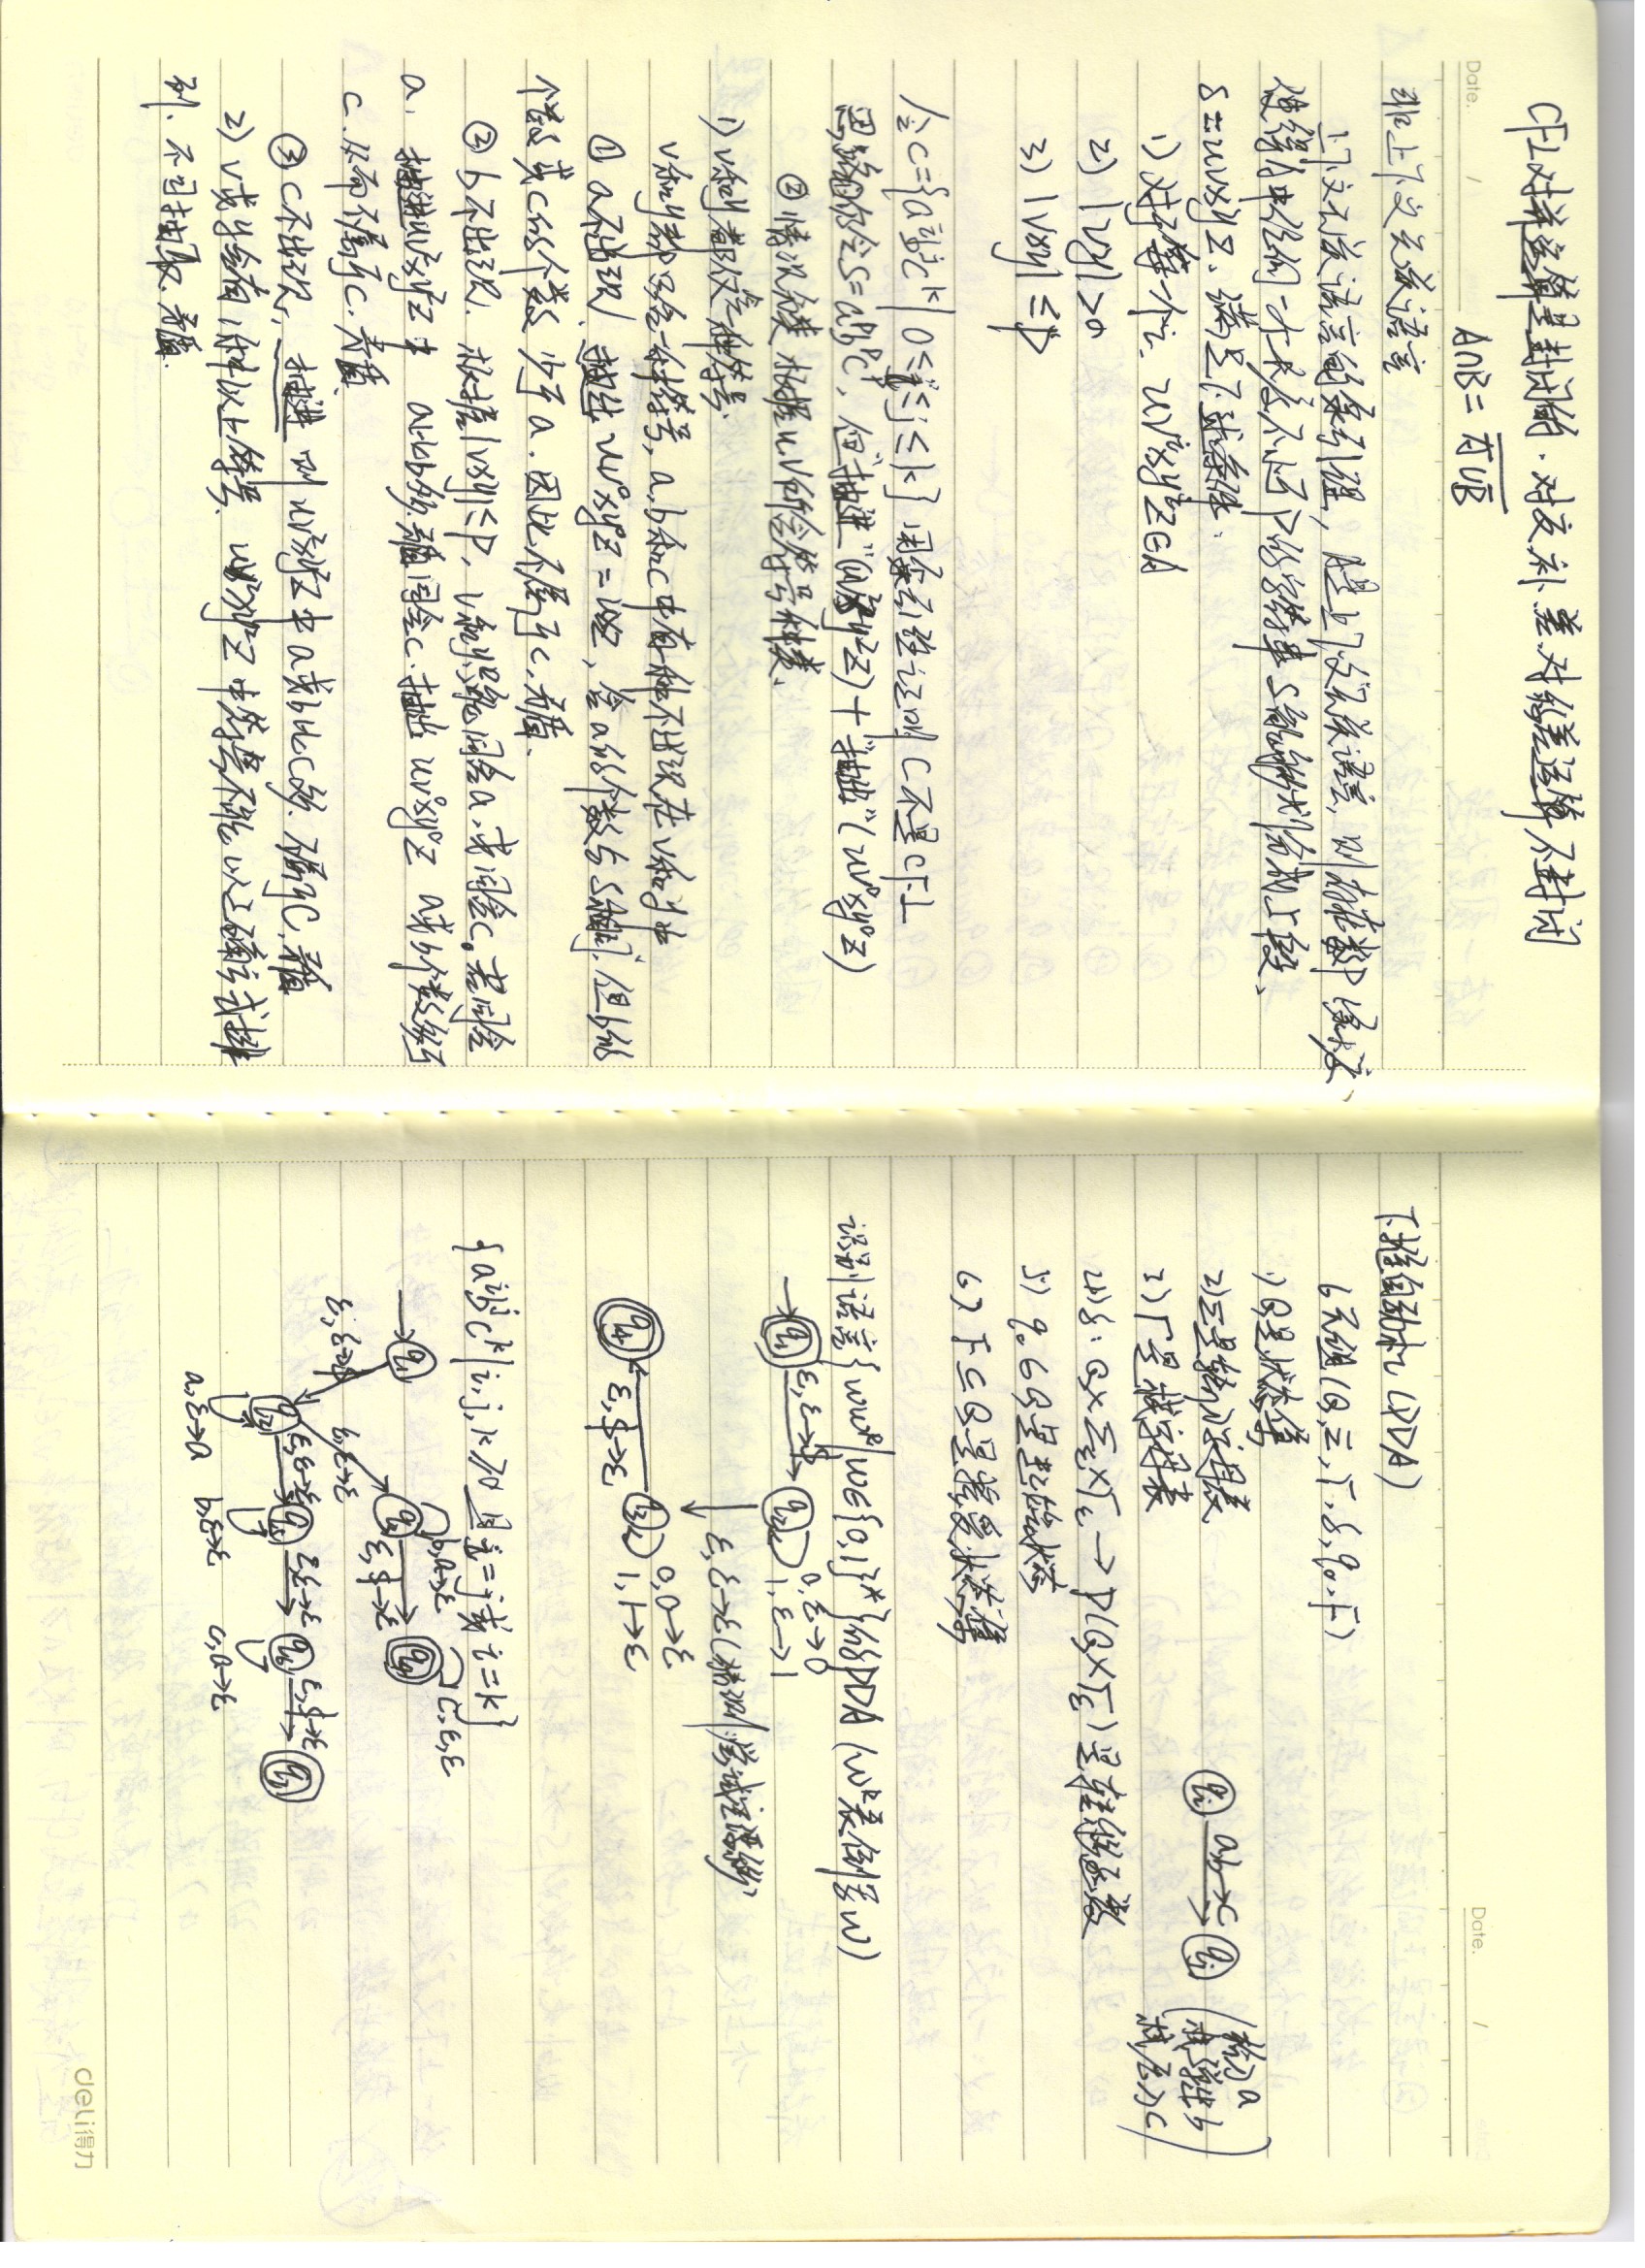 CFL对并运算是封闭的.对交.补.差.对称差运算不封闭
Date. / A∩B= \overline{\overline{A}∪\overline{B}}
非上下文无关语言
上下文无关语言的泵引理, A是上下文无关语言, 则存在数P(泵长度
使得A中任何一个长度不小于P的字符串S能够划分成5段、
S=uvxyz、满足下述条件:
1) 对于每一个i. uvⁱxyⁱz∈A
2) |vy|>0
3) |vxy|≤p
令C={aⁱbʲcᵏ| 0≤i≤j≤k} 用泵引理证明C不是CFL
思路①仍令S=aᵖbᵖcᵖ, 但"抽进"(uv²xy²z)+"抽出"(uv⁰xy⁰z)
②情况分类 根据u.v所含符号种类、
1) v和y都仅含一种符号.
v和y都只含一种符号, a,b和c中有一种不出现在v和y中、
① a不出现、抽出 uv⁰xy⁰z=uxz, 含a的个数与S相同. 但b的
个数或c的个数 少于a. 因此不属于C, 矛盾.
② b不出现. 根据|vxy|≤p, v和y只能同含a.或同含c。若同含
a, 抽进uv²xy²z中 a比b多.矛盾同含c.抽出 uv⁰xy⁰z a或b个数多于
c. 从而不属于C. 矛盾.
③ c不出现, 抽进 则uv²xy²z中a或b比c多. 不属于C, 矛盾
2) v或y含有1种以上符号. uv²xy²z中符号不能以正确方式排
列. 不可抽取. 矛盾.
Date. /
下推自动机 (PDA)
6元组(Q,Σ,Γ,δ,q₀,F)
1) Q是状态集
2) Σ是输入字母表
3) Γ是栈字母表
qᵢ a,b→c qⱼ
(输入a
栈弹出b
栈压入c)
4) δ: Q×Σ_ε×Γ_ε→P(Q×Γ_ε)是转移函数
5) q₀∈Q是起始状态
6) F⊆Q是接受状态集
识别语言{wwᴿ|w∈{0,1}*}的PDA (wᴿ表倒写w)
q₁ ε,ε→$ q₂ 0,ε→0
1,ε→1
ε,ε→ε(猜测,尝试空漂移)
q₄ ε,$→ε q₃ 0,0→ε
1,1→ε
{aⁱbʲcᵏ|i,j,k≥0 且i=j或i=k}
b,a→ε c,ε,ε
q₁ q₃ ε,$→ε q₄
ε,ε→$ ε,ε→ε
q₂ ε,ε→ε q₅ ε,ε→ε q₆ ε,$→ε q₇
a,ε→a b,ε→ε c,a→ε
deli得力